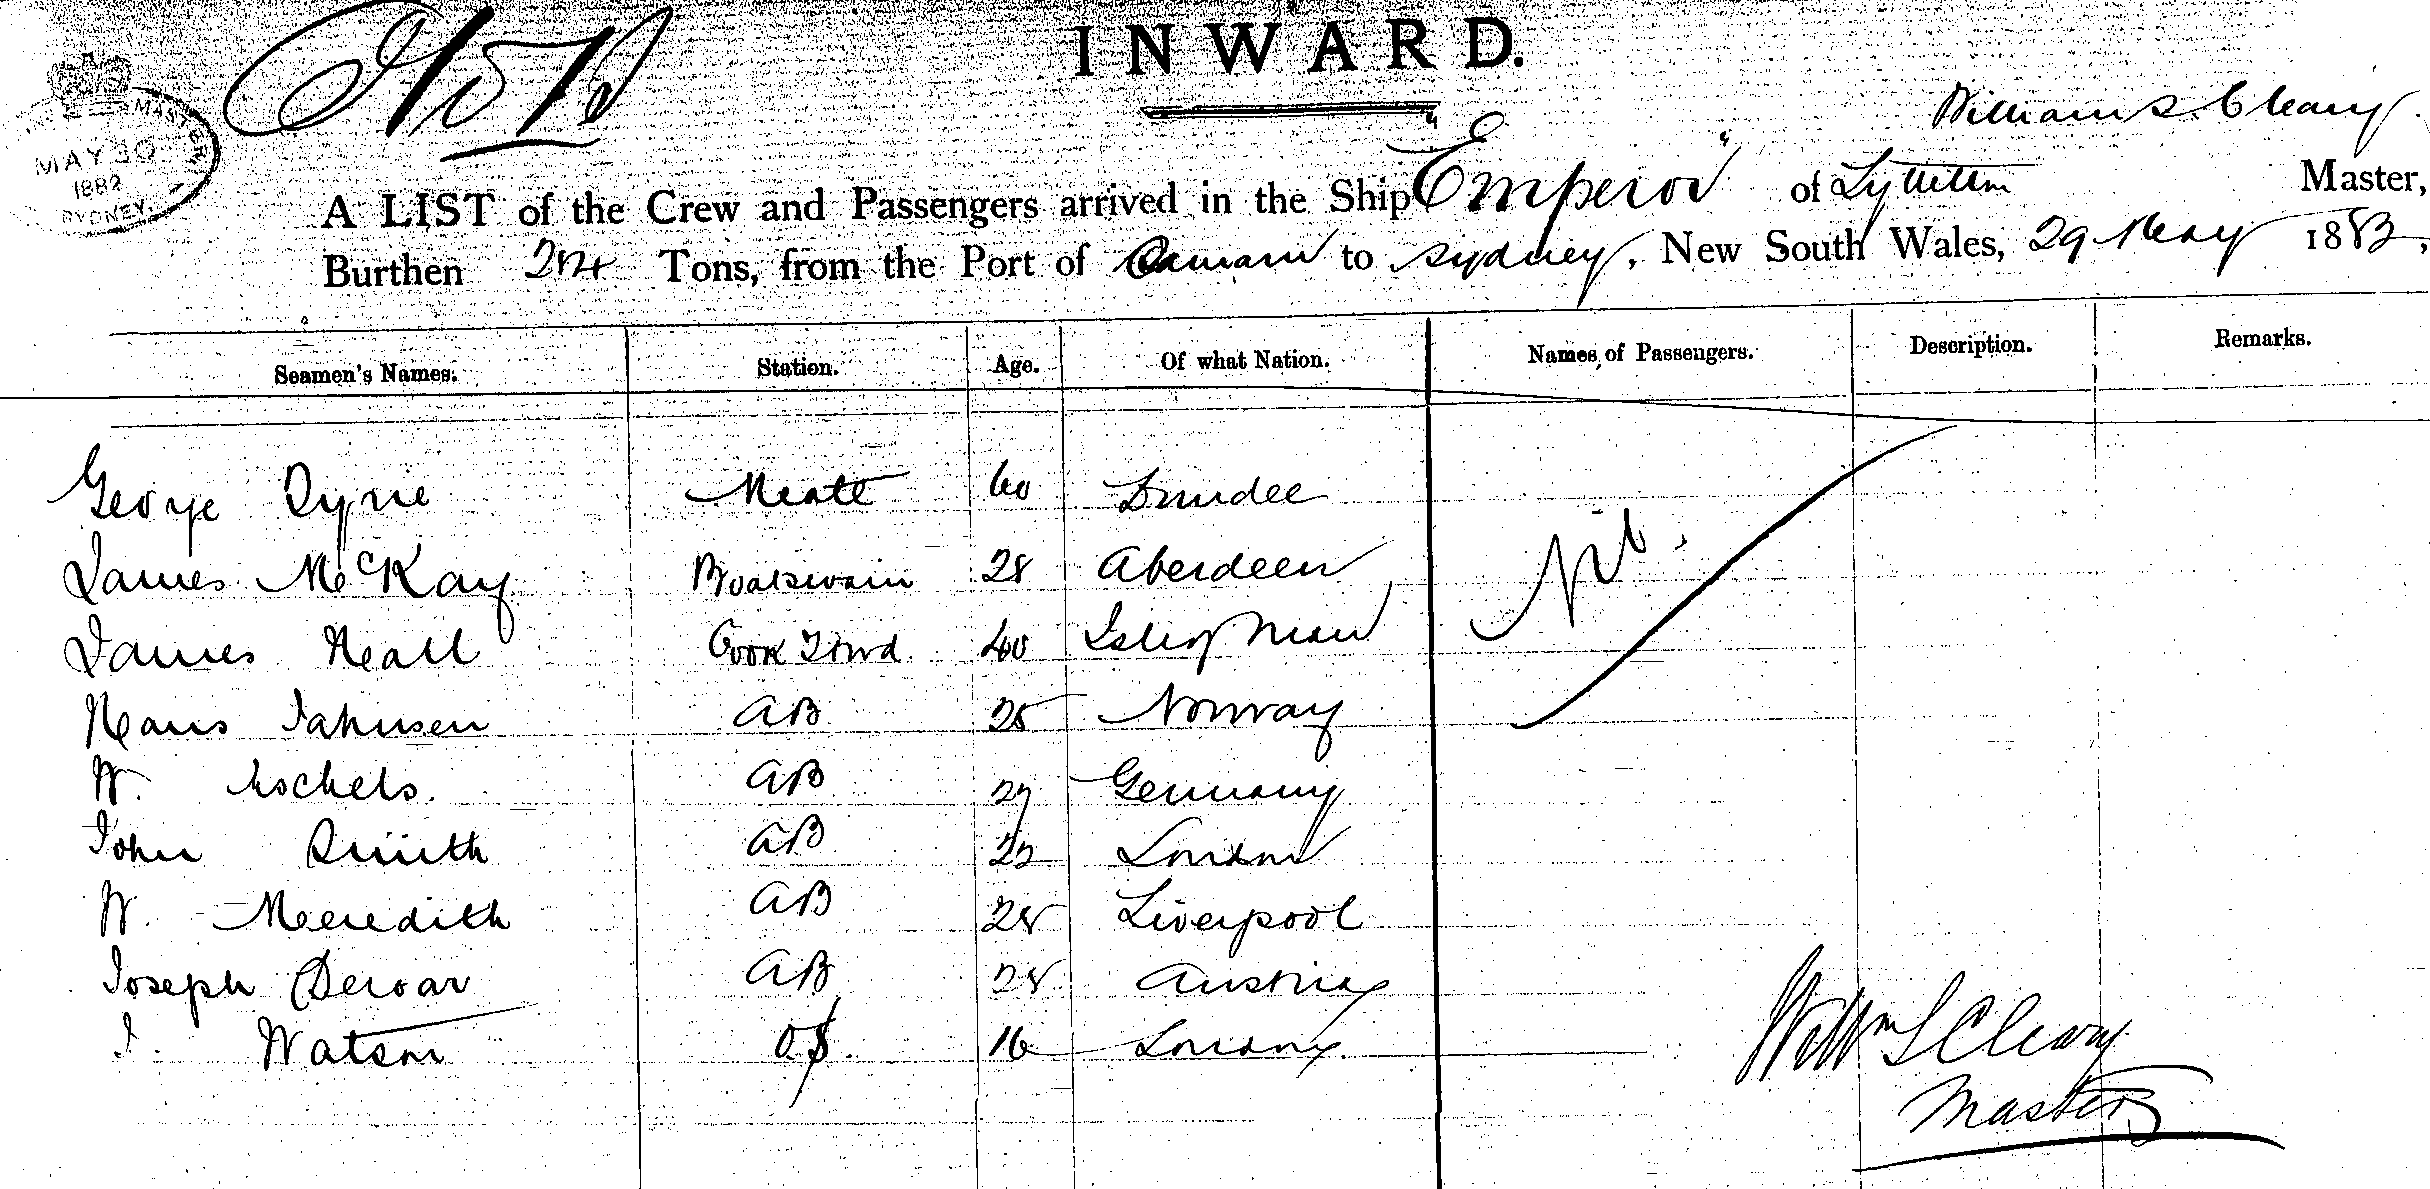 INWARD.
MAY 30
1882
SYDNEY.
William S. Cleary.
A LIST of the Crew and Passengers arrived in the Ship "Emperor" of Lyttelton Master,
Burthen Tons, from the Port of to Sydney, New South Wales, 29 May 1882,
Seamen's Names. Station. Age. Of what Nation. Names of Passengers. Description. Remarks.
George Dyrie Mate 60 Dundee
James McKay Boatswain 28 Aberdeen Nil.
James Neall Cook Stwd. 40 Isle of Man
Hans Jahnsen AB 25 Norway
W. AB 27 Germany
John Smith AB 22 London
W. Meredith AB 28 Liverpool
Joseph Dewar AB 28 Austria
J. Watson OS. 16 London.
Willm S Cleary
Master